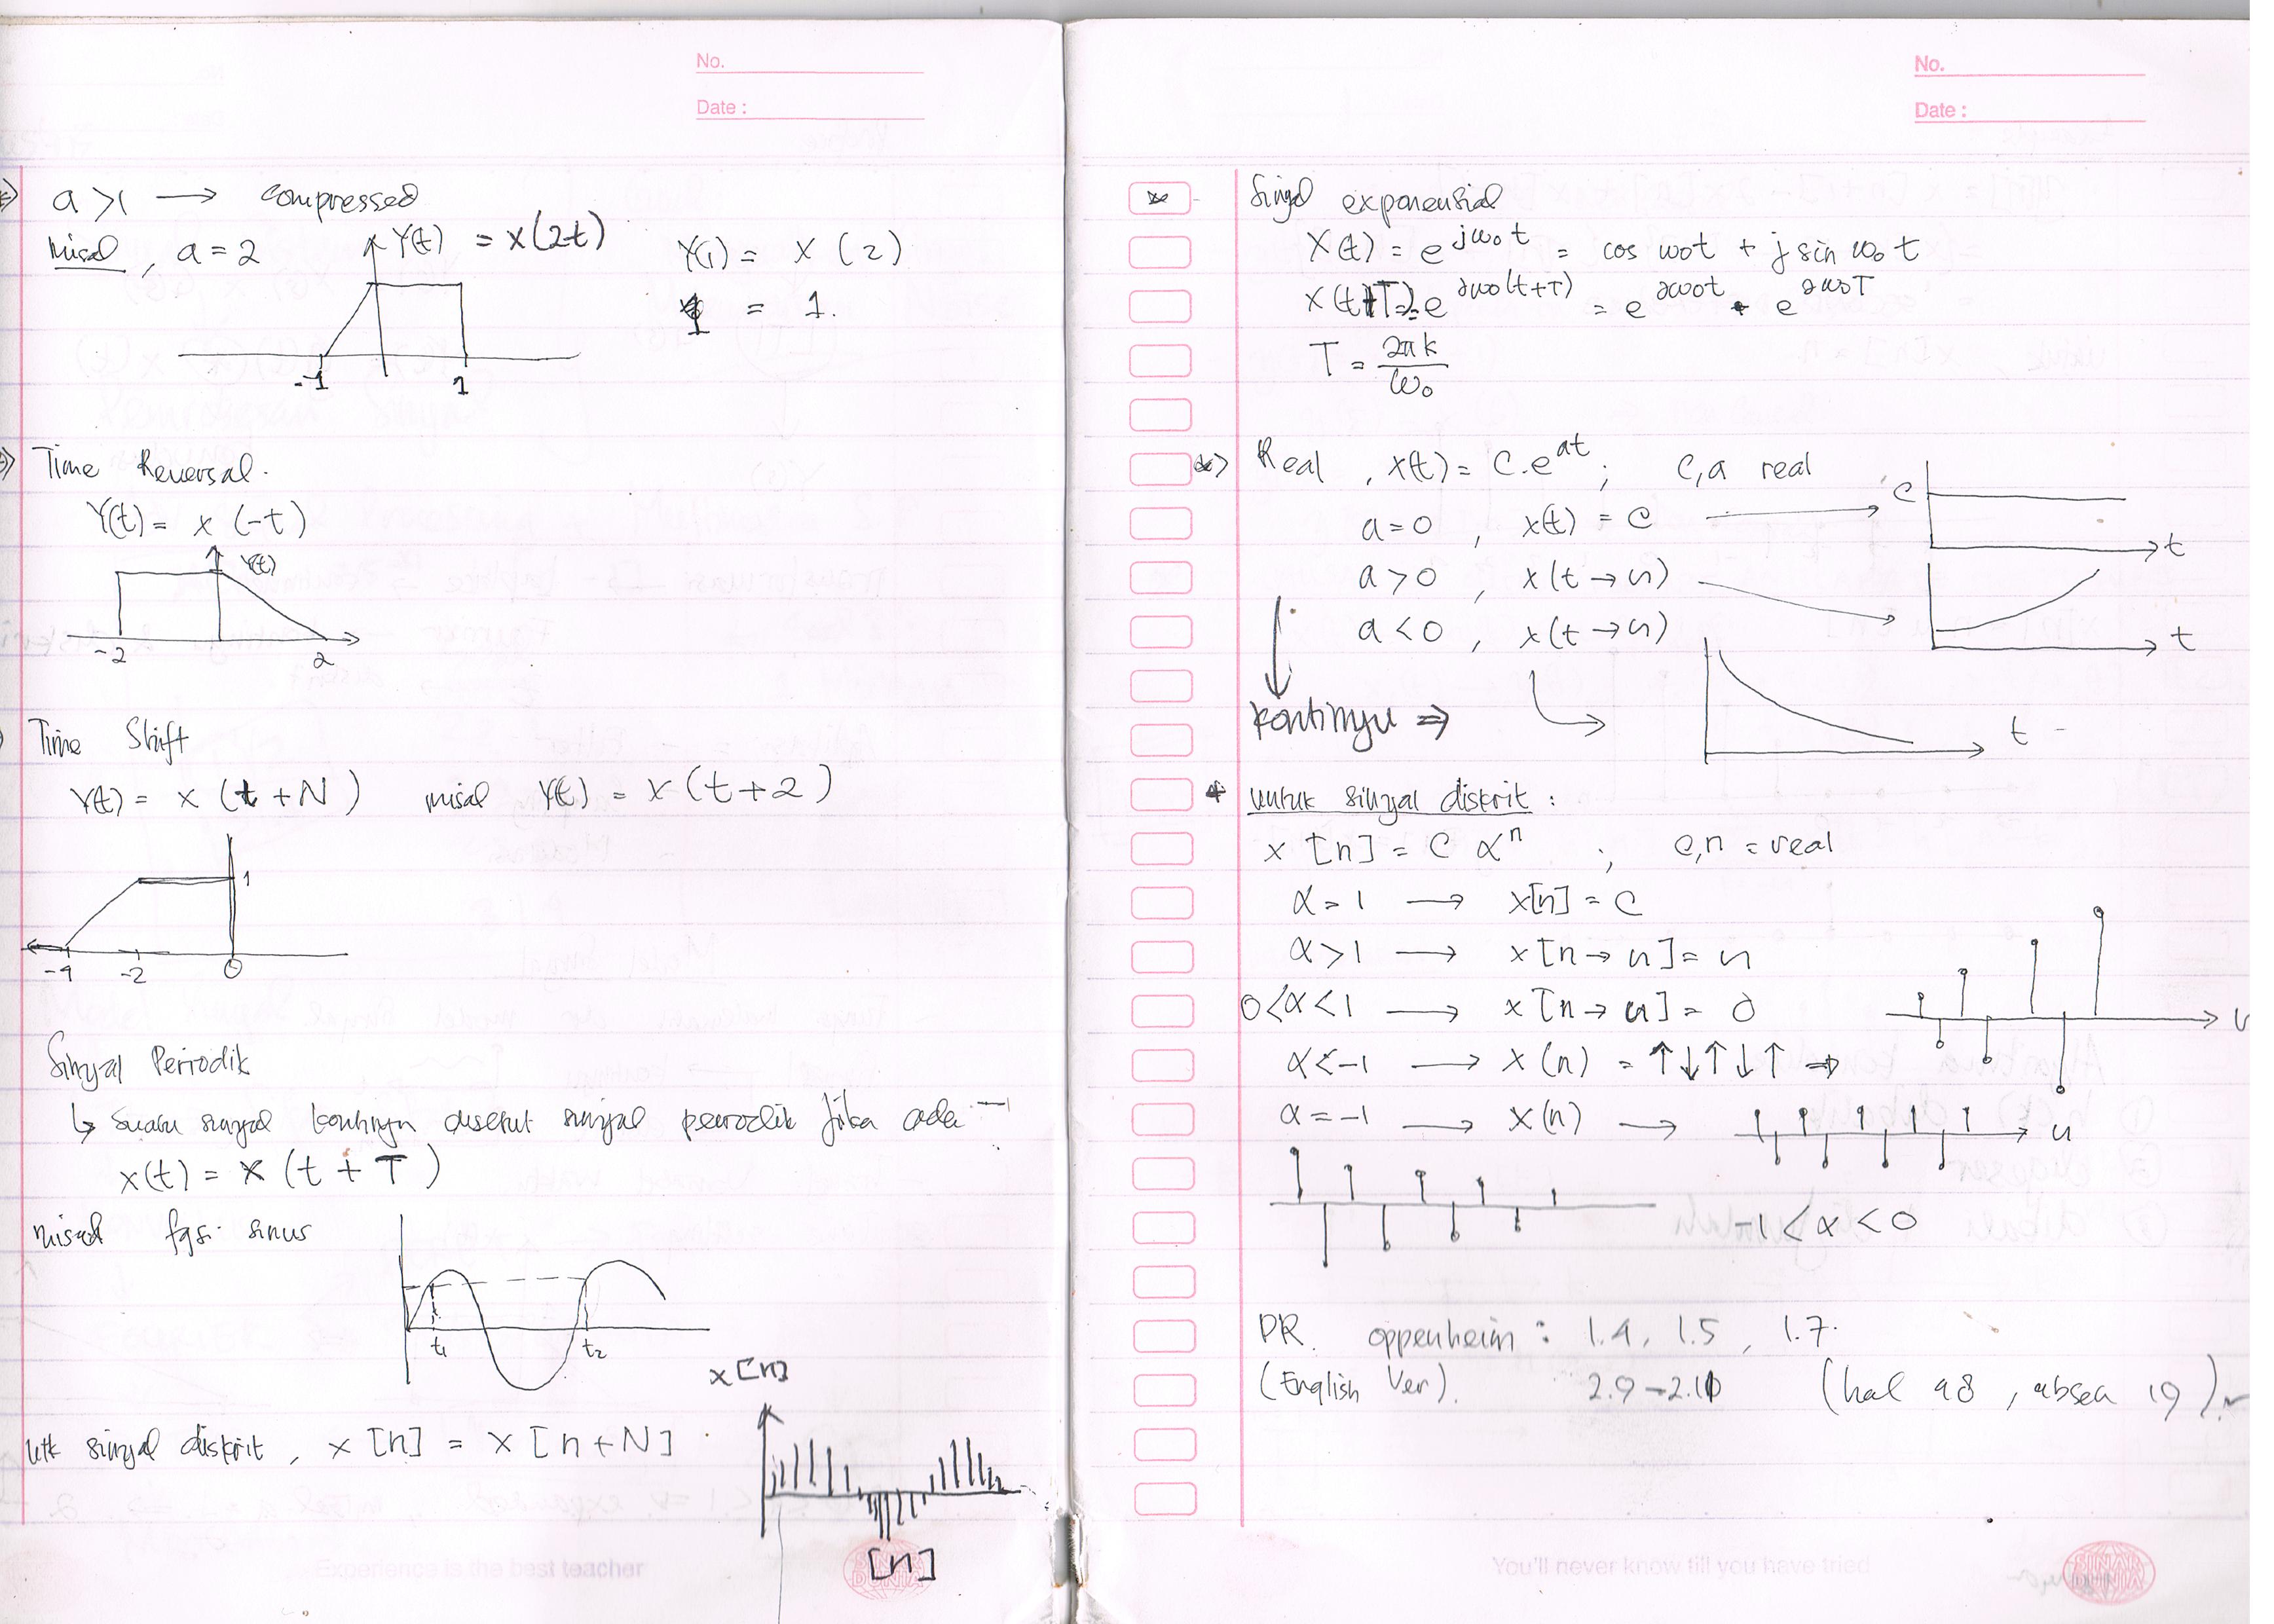 No.
Date :
a >1 → compressed
misal , a = 2
Y(t) = x(2t)
Y(1) = x (2)
1 = 1.
-1 1
Time Reversal.
Y(t) = x (-t)
Y(t)
-2 2
Time Shift
Y(t) = x (t + N ) misal Y(t) = x (t+2)
1
-4 -2 0
Sinyal Periodik
↳ Suatu sinyal kontinyu disebut sinyal periodik jika ada
x(t) = x (t + T )
misal fgsi sinus
t1 t2
x[n]
utk sinyal diskrit , x [n] = x [n+N]
[n]
Experience is the best teacher
SINAR DUNIA
No.
Date :
Sinyal exponensial
X(t) = e^jω₀t = cos ω₀t + j sin ω₀ t
x(t+T) = e^jω₀(t+T) = e^jω₀t . e^jω₀T
T = 2πk / ω₀
Real , x(t) = C.e^at ; C,a real
C
a = 0 , x(t) = C →
t
a > 0 , x(t → ∞)
a < 0 , x(t → ∞)
t
kontinyu ⇒
t
* untuk sinyal diskrit :
x [n] = C α^n ; C,n = real
α = 1 → x[n] = C
α >1 → x [n → ∞] = ∞
0<α<1 → x [n → ∞] = 0
α<-1 → x (n) = ↑↓↑↓↑ ⇒
α = -1 → x (n) →
n
-1 < α < 0
PR. oppenheim : 1.4, 1.5 , 1.7.
(English Ver). 2.9 - 2.10 (hal 48 , absen 19 )
You'll never know till you have tried
SINAR DUNIA